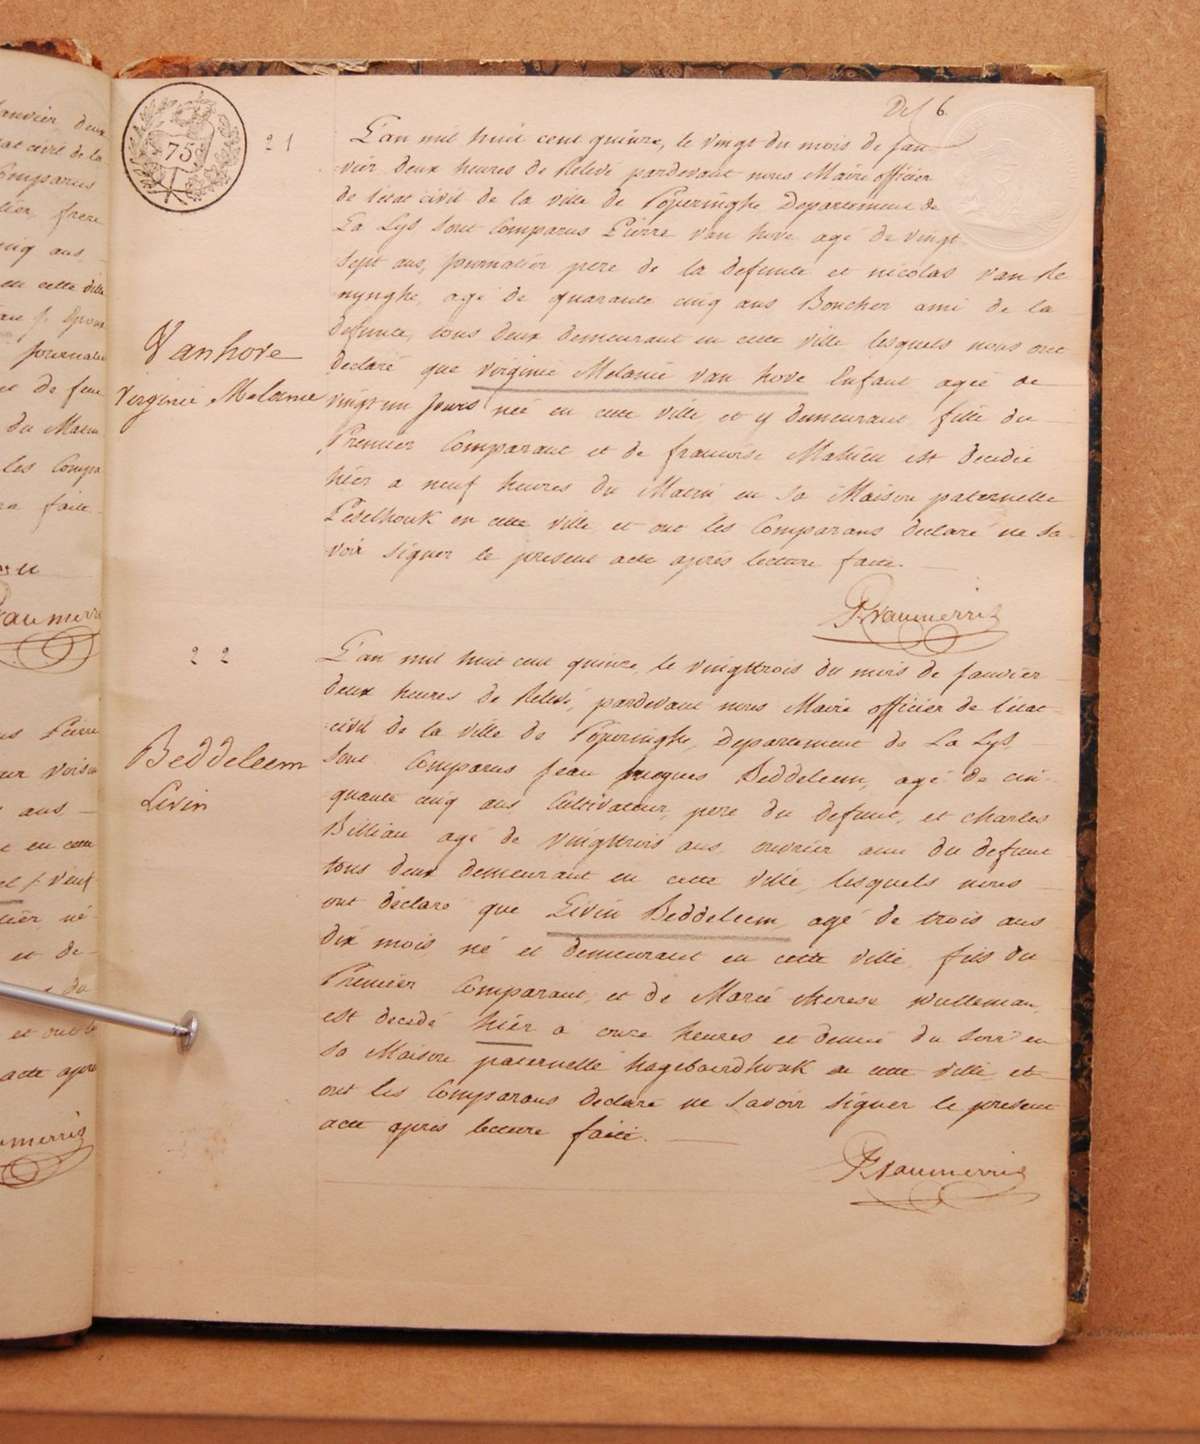 anvier deux
Comparus
frere
cinq ans
en cette ville
journalie
de feu
du Matin
les Compa
faite
Pierre
voisin
ans
veuf
né
et de
et ont le
acte apres
75
Def 6.
21
L'an mil huit cent quinze, le vingt du mois de jan
vier deux heures de Relevé pardevant nous Maire officier
de l'etat civil de la ville de Poperinghe Departement de
La Lys sont Comparus Pierre van hove agé de vingt
sept ans, journalier pere de la defunte et nicolas van Re
nynghe, agé de quarante cinq ans Boucher ami de la
defunte, tous deux demeurant en cette ville lesquels nous ont
declaré que virginie Melanie van hove Enfant agée de
vingt un jours née en cette ville et y demeurant, fille du
Premier Comparant et de francoise Mahieu est decedée
hier a neuf heures du Matin en sa Maison paternelle
Peselhouk en cette ville, et ont les Comparans declaré ne sa
voir signer le present acte après lecture faite.
Vanhove
Virginie Melanie
22
L'an mil huit cent quinze, le vingttrois du mois de janvier
deux heures de Relevé, pardevant nous Maire officier de l'etat
civil de la ville de Poperinghe, Departement de La Lys
sont Comparus jean jacques Beddeleem, agé de cin
quante cinq ans Cultivateur, pere du defunt, et charles
Billiau agé de vingttrois ans ouvrier ami du defunt
tous deux demeurant en cette ville, lesquels nous
ont declaré que Livin Beddeleem, agé de trois ans
dix mois, né et demeurant en cette ville, fils du
Premier Comparant, et de Marie therese wulleman,
est decedé hier a onze heures et demie du soir en
sa Maison paternelle hagebaerdhouk de cette ville, et
ont les Comparans declaré ne savoir signer le present
acte apres lecture faite.
Beddeleem
Livin